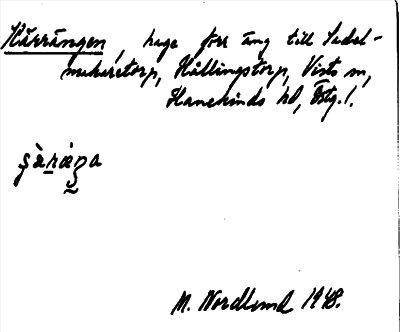 Kärrängen, hage förr äng till Sadel-
makaretorp, Hållingstorp, Vists sn,
Hanekinds hd, Östg. l.
M. Nordlund 1948.